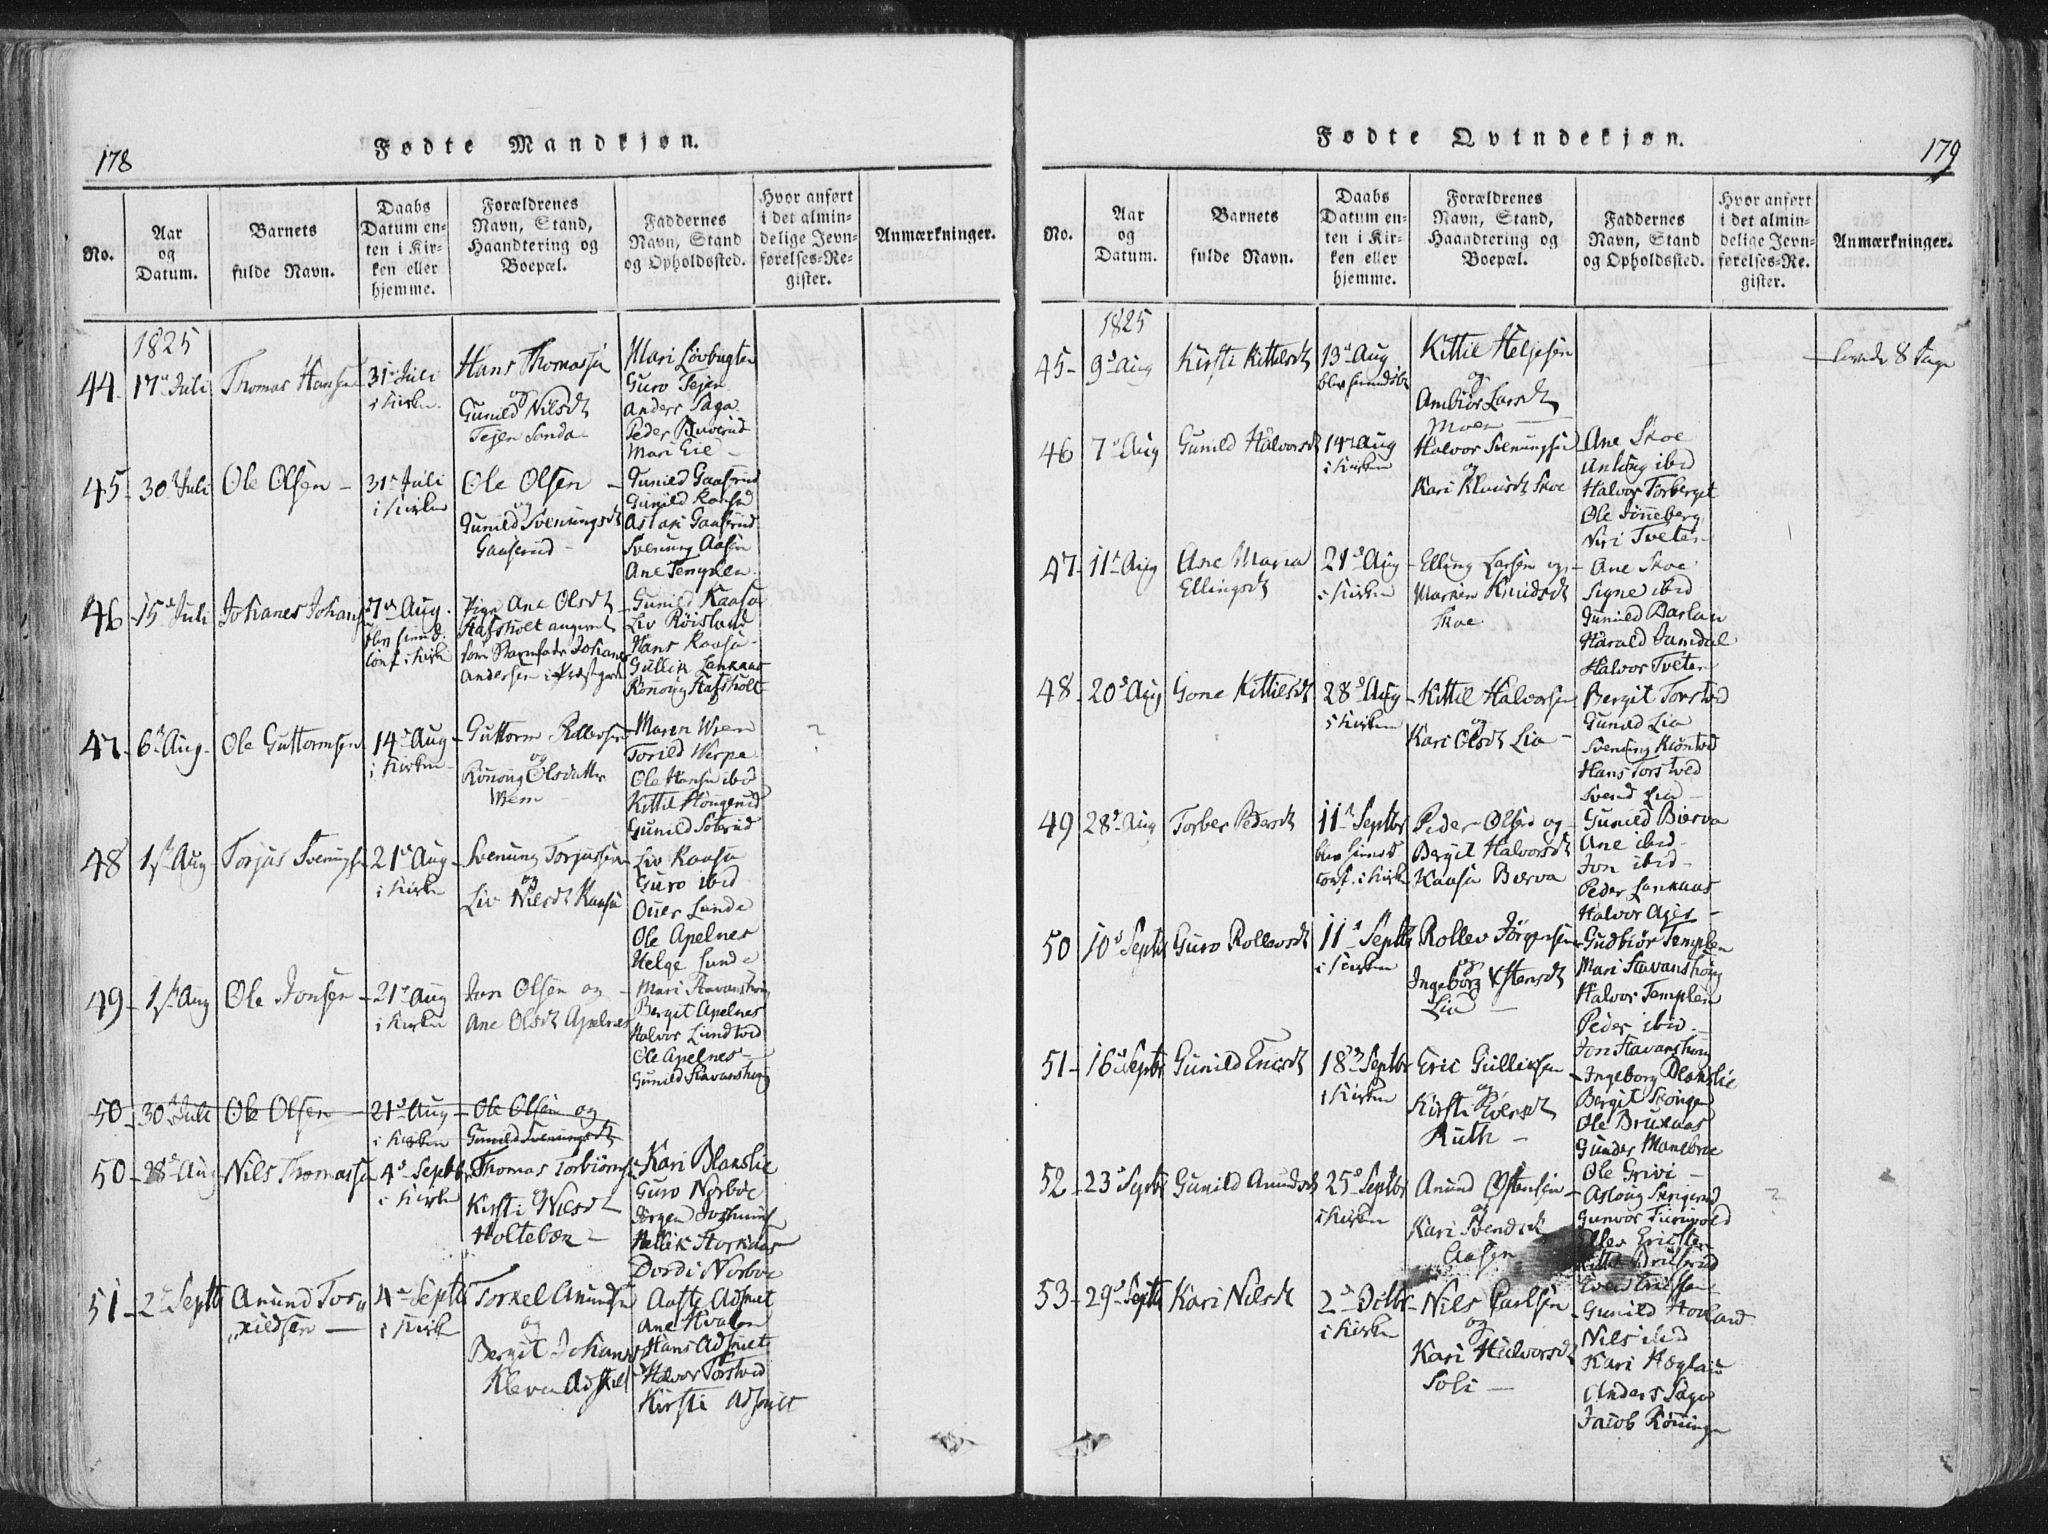 178
Fødte Mandkjøn.
No.
Aar
og
Datum.
Barnets
fulde Navn.
Daabs
Datum en-
ten i Kir-
ken eller
hjemme.
Forældrenes
Navn, Stand,
Haandtering og
Boepæl.
Faddernes
Navn, Stand
og Opholdssted.
Hvor anført
i det almin-
delige Jevn-
førelses-Re-
gister.
Anmærkninger.
1825
44. 17 Juli Thomas Hansen
31 Juli
i Kirken
Hans Thomassen
og
Gunild Nilsdt
Tejen Sonda
Mari Løvbugten
Guro Tejen
Anders Saga
Peder
Mari Eie
45 30 Juli Ole Olsen
31 Juli
i Kirken
Ole Olsen
og
Gunild Svenungsdt
Gaaserud
Gunild Gaaserud
Gunild Kaasa
Aslari Gaaserud
Svenung Aasen
Ane Templen
46 15 Juli Johanes Johans
7 Aug.
conf. i Kirk
Pige Ane Olsdt
Hafsholt angivet
som Barnefader Johanes
Andersen i Præstgard
Gunild Kaasa
Liv Røisland
Hans Kaasa
Gullik Lankaas
Rønoug Hafsholt
47 6 Aug. Ole Guttormsen
14 Aug
i Kirken
Guttorm
og
Rønoug Olsdatter
Wrem
Maren Wrem
Torild Verpe
Ole Hansen ibd
Kittil Hougerud
Gunild Søbrud
?
48 1 Aug Torjus Svenungsen
21 Aug
i Kirken
Svenung Torjussen
og
Liv Nilsdt Kaasa
Liv Kaasa
Guro ibid
Oner Lunde
Ole Apelnes
Helge Lunde
49 1 Aug Ole Jonsen
21 Aug
i Kirken
Jon Olsen og
Ane Olsdt Apelnes
Mari Stavanshoug
Bergit Apelnes
Halvor Lundtved
Ole Apelnes
Gunild Stavanshoug
50 30 Juli Ole Olsen
21 Aug
i Kirken
Ole Olsen og
Gunild Svenungsdt
50 28 Aug Nils Thomassen
4 Septbr
i Kirken
Thomas Torbiørns
og
Kirsti Nilsdt
Holtebæk
Kari Blakslie
Guro Norboe
Jørgen
Hellik Storkaas
Dordi Norboe
51 2 Septbr Anund Tor
kildsen
4 Septbr
i Kirk
Torkel Anundsen
og
Bergit Johans
Kleva Adskilt
Aaste Adsnut
Ane Hvalen
Hans Adsnut
Halvor Torstved
Kirsti Adsnut
179
Fødte Qvindekjøn.
No.
Aar
og
Datum.
Barnets
fulde Navn.
Daabs
Datum en-
ten i Kir-
ken eller
hjemme.
Forældrenes
Navn, Stand,
Haandtering og
Boepæl.
Faddernes
Navn, Stand
og Opholdssted.
Hvor anført
i det almin-
delige Jevn-
førelses-Re-
gister.
Anmærkninger.
1825
45 9 Aug Kirsti Kittilsdt
13 Aug
blev hiemdøbt
Kittil Heljesen
og
Ambiør Larsdt
Moen
levede 8 Dage
46 7 Aug Gunild Halvorsdt
14 Aug
i Kirken
Halvor Svenungsen
og
Kari Knudsdt Skoe
Ane Skoe
Anlaug ibid
Halvor Torberget
Ole Tønneberg
Niri Tveten
47 11 Aug Ane Maria
Ellingsdt
21 Aug
i Kirken
Elling Larsen og
Marken Knudsdt
Skoe
Ane Skoe
Signe ibid
Gunild Barlau
Harald Jamdal
Halvor Tveten
48 20 Aug Gone Kittilsdt
28 Aug
i Kirken
Kittil Halvorsen
og
Kari Olsdt Lia
Bergit Torstved
Gunild Lia
Svenung Kiøntvd
Hans Torstved
Svend Lia
49 28 Aug Torber Pedersdt
11 Septbr
blev hiemd
conf. i Kirken
Peder Olsen og
Bergit Halvorsdt
Kaasa Bierva
Gunild Bierva
Ane ibid
Jon ibid
Peder Lankaas
Halvor Ajer
50 10 Septbr Guro Rollevsdt
11 Septbr
i Kirken
Rollev Jørgensen
og
Ingeborg Østensdt
Lia
Gudbiør Templen
Mari Stavanshoug
Halvor Templen
Peder ibid
Jon Stavanshoug
51 16 Septbr Gunild Ericsdt
18 Septbr
i Kirken
Eric Gulliksen
og
Kirsti Iversdt
Ruth
Ingeborg Blakslie
Bergit Skougen
Ole Brukaas
Gunder Maneboe
Ole Grivi
52 23 Septbr Gunild Anundsdt
25 Septbr
i Kirken
Anund Østensen
og
Kari Svendsdt
Aasen
Aslaug
Gunvor
Kittil
?
53 29 Septbr Kari Nilsdt
2 Octbr
i Kirken
Nils Carlsen
og
Kari Halvorsdt
Soli
Gunild Hovland
Nils ibid
Kari
Anders Saga
Jacob Rønningen